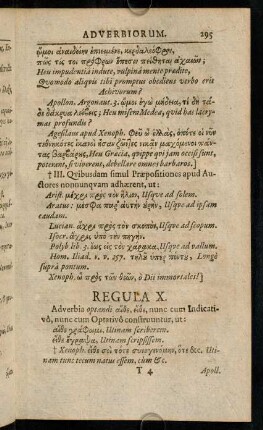 ADVERBIORUM. 295
ὤμοι ἀναιδείην ἐπιειμένε, κερδαλεόφρον,
πῶς τίς τοι πρόφρων ἔπεσιν πείθηται ἀχαιῶν;
Heu impudentia indute, vulpina mente prædite,
Quomodo aliquis tibi promptus obediens verbo erit
Achivorum?
Apollon. Argonaut. ὤμοι ἐγὼ
Heu misera Medea, quid has lacry-
mas profundis?
Agesilaus apud Xenoph. Φεῦ ὦ ἑλλὰς,
βαρβάρους, Heu Græcia, quippe qui jam occisi sunt,
poterant, si viverent, debellare omnes barbaros.
† III. Quibusdam simul Præpositiones apud Au-
ctores nonnunquam adhærent, ut:
Arist. μέχρι πρὸς τὸν ἥλιον, Usque ad solem.
Aratus: Usque ad ipsam
caudam.
Lucian. ἄχρι πρὸς τὸν σκοπὸν, Usque ad scopum.
Isocr. ἄχρι ὑπὸ τὴν πηγήν.
Polyb. lib. ἕως εἰς τὸν χάρακα, Usque ad vallum.
Hom. Iliad. Longè
supra pontum.
Xenoph. ὦ πρὸς τῶν θεῶν, ô Dii immortales!
REGULA X.
Adverbia optandi αἴθε, εἴθε, nunc cum Indicati-
vô, nunc cum Optativô construuntur, ut:
εἴθε γράφοιμι. Utinam scriberem.
εἴθε ἔγραψα. Utinam scripsissem.
† Xenoph. εἴθε σοι τότε συνεγενόμην, ὅτε δεc. Uti-
nam tunc tecum natus essem, cùm &c.
T 4 Apoll.